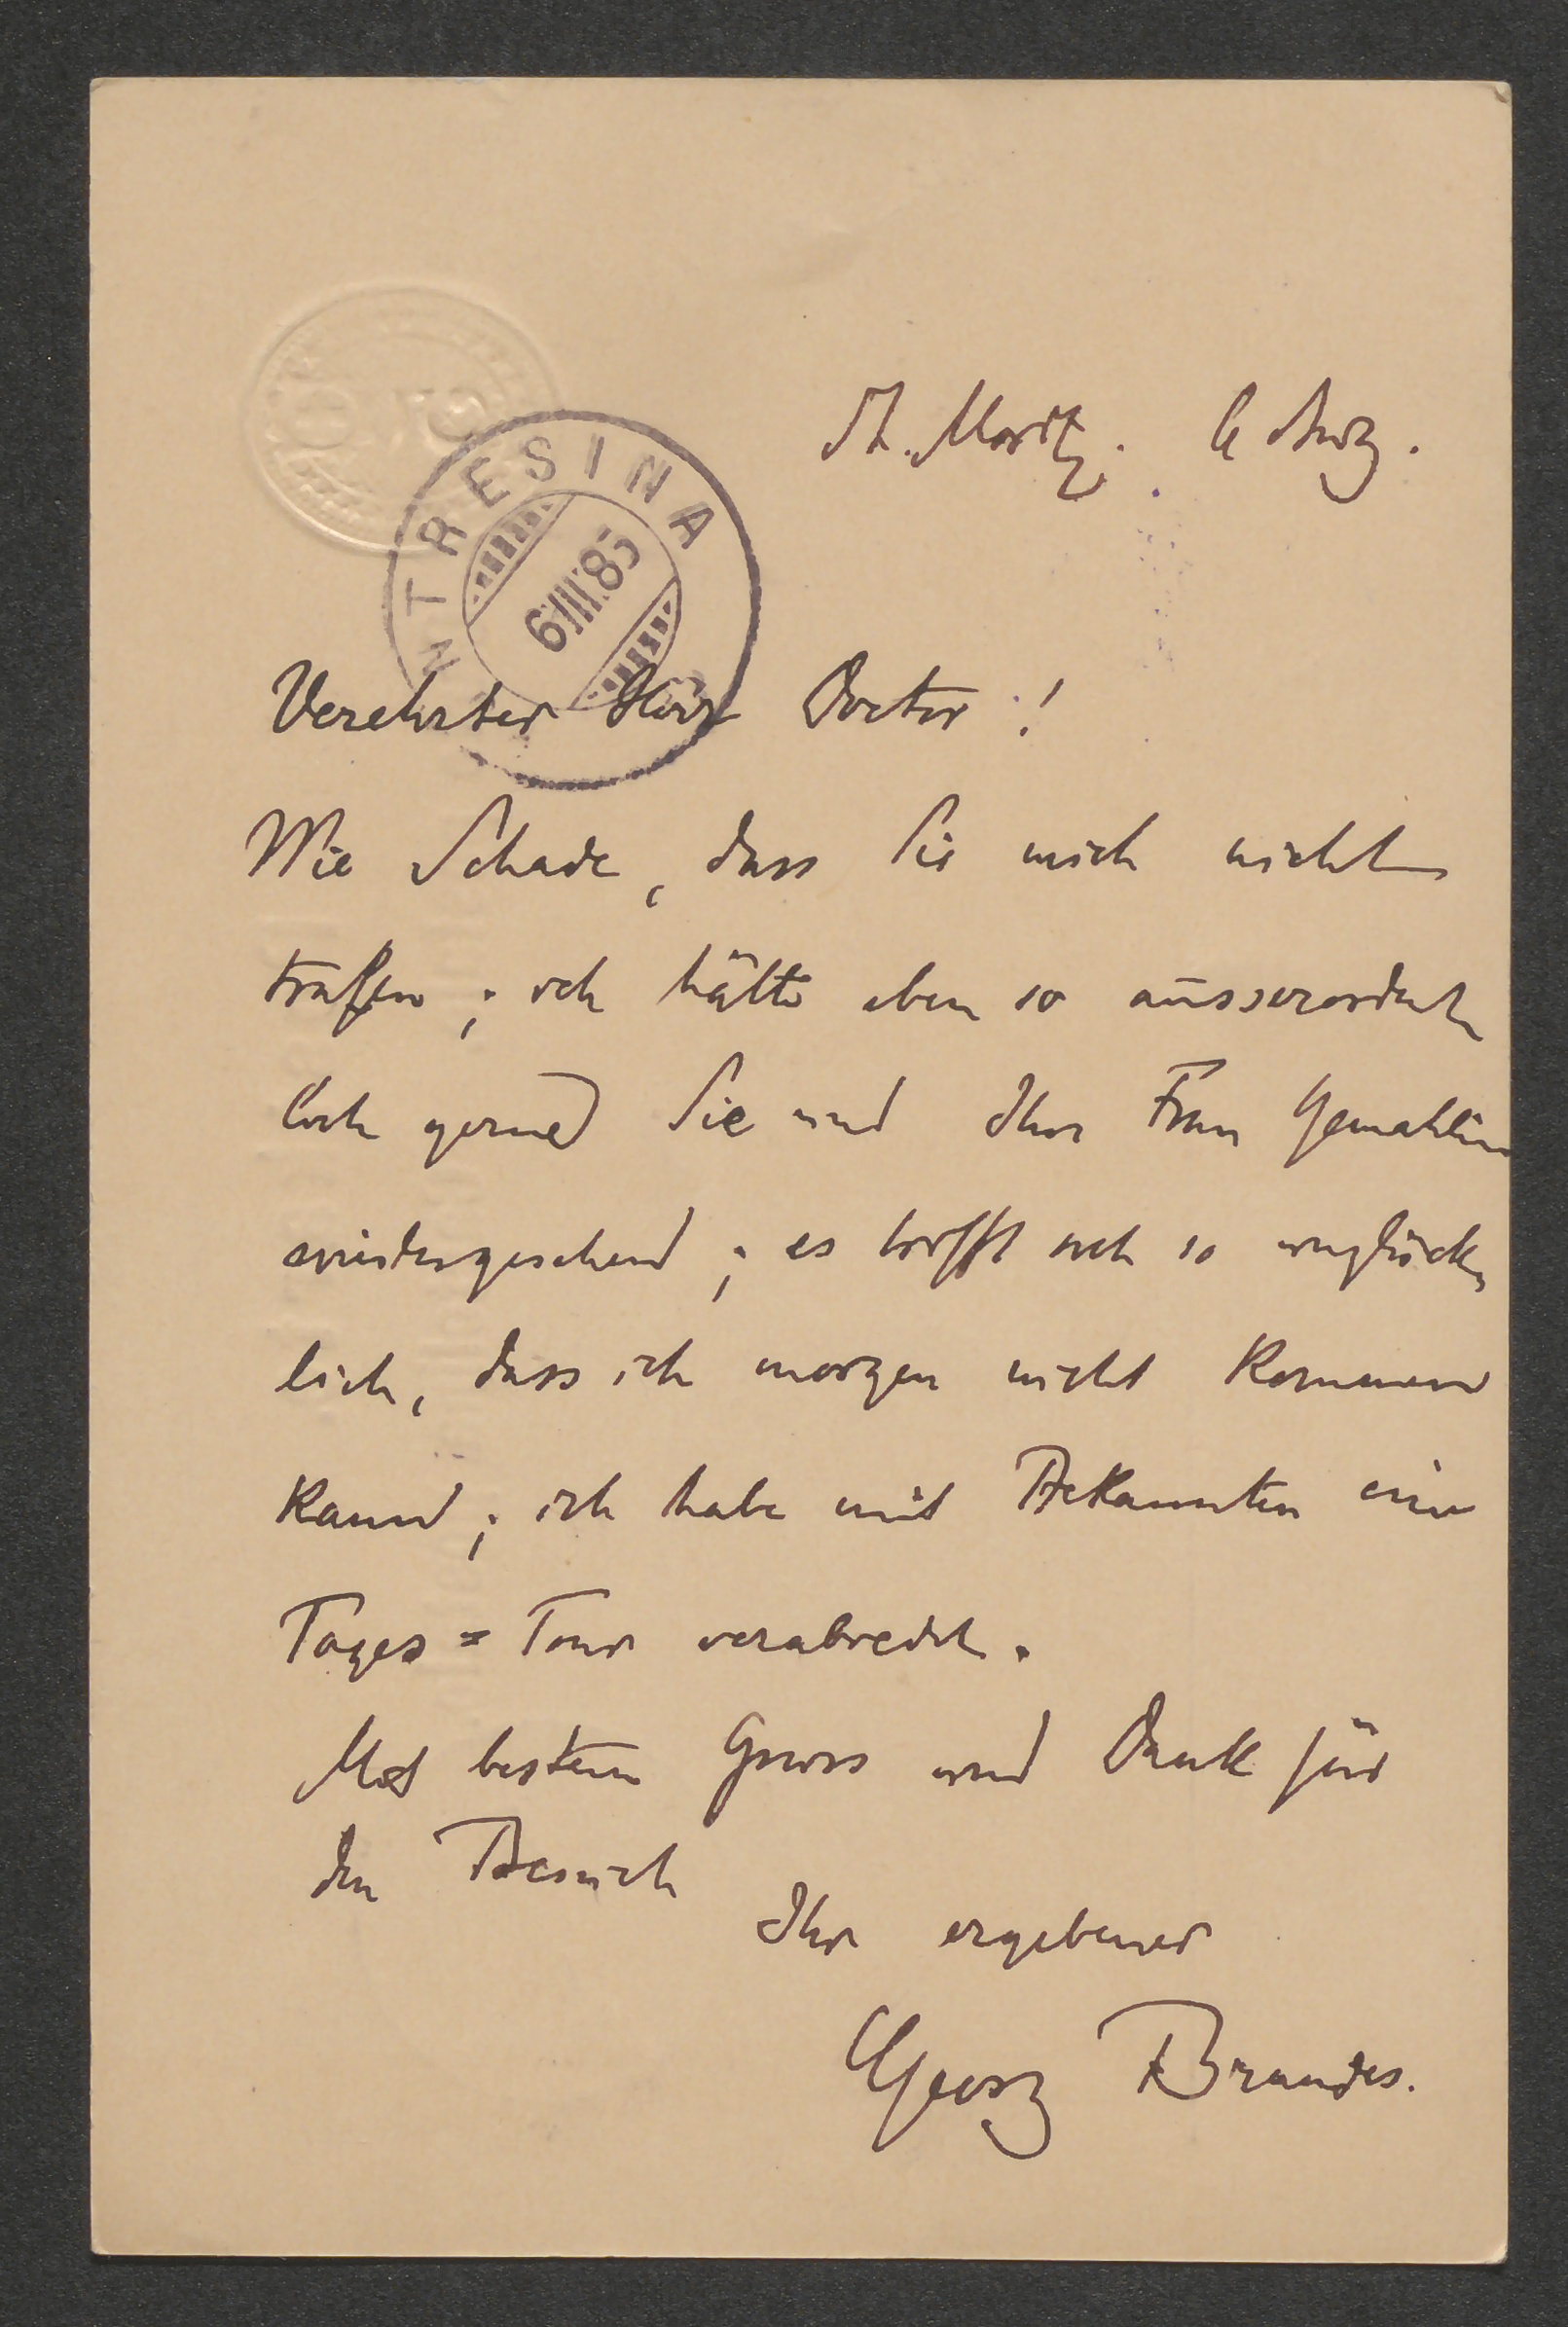 St. Moritz. 6 Aug.
NTRESINA
6.VIII.85
Verehrter Herr Doctor!
Wie Schade, dass Sie mich nicht
trafen; ich hätte eben so ausserordent
lich gerne Sie und Ihre Frau Gemahlin
wiedergesehen; es trifft sich so unglück
lich, dass ich morgen nicht kommen
kann; ich habe mit Bekannten eine
Tages=Tour verabredet.
Mit bestem Gruss und Dank für
den Besuch
Ihr ergebener
Georg Brandes.